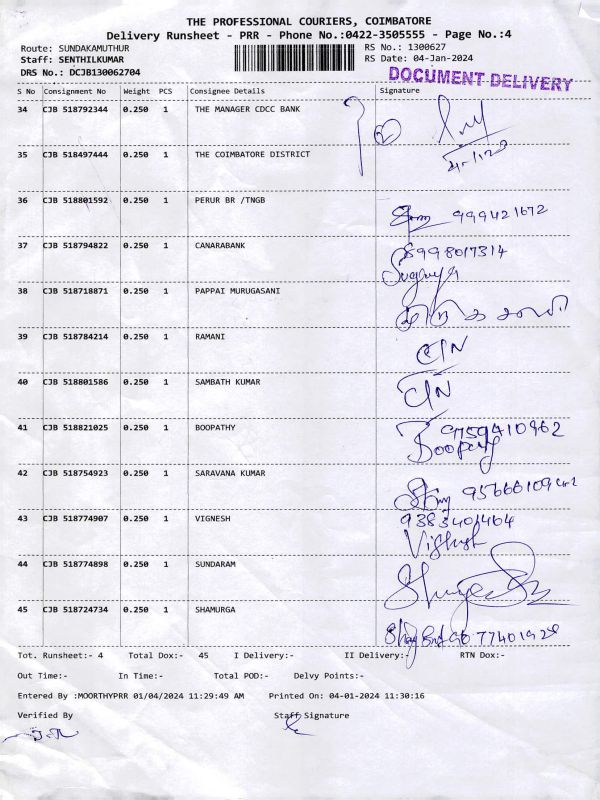 THE PROFESSIONAL COURIERS, COIMBATORE
Delivery Runsheet - PRR - Phone No.:0422-3505555 - Page No.:4
Route: SUNDAKAMUTHUR RS No.: 1300627
Staff: SENTHILKUMAR RS Date: 04-Jan-2024
DRS No.: DCJB130062704
DOCUMENT DELIVERY
S No Consignment No Weight PCS Consignee Details Signature
34 CJB 518792344 0.250 1 THE MANAGER CDCC BANK
35 CJB 518497444 0.250 1 THE COIMBATORE DISTRICT
36 CJB 518801592 0.250 1 PERUR BR /TNGB 999421672
37 CJB 518794822 0.250 1 CANARABANK 8998017314
38 CJB 518718871 0.250 1 PAPPAI MURUGASANI
39 CJB 518784214 0.250 1 RAMANI C/N
40 CJB 518801586 0.250 1 SAMBATH KUMAR C/N
41 CJB 518821025 0.250 1 BOOPATHY 9759410962
Boopathy
42 CJB 518754923 0.250 1 SARAVANA KUMAR
43 CJB 518774907 0.250 1 VIGNESH 9383401464
Vignesh
44 CJB 518774898 0.250 1 SUNDARAM
45 CJB 518724734 0.250 1 SHAMURGA
Tot. Runsheet:- 4 Total Dox:- 45 I Delivery:- II Delivery:- RTN Dox:-
Out Time:- In Time:- Total POD:- Delvy Points:-
Entered By :MOORTHYPRR 01/04/2024 11:29:49 AM Printed On: 04-01-2024 11:30:16
Verified By Staff Signature